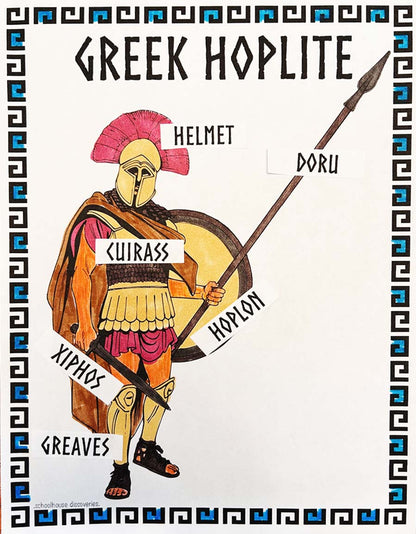 GREEK HOPLITE
HELMET
DORU
CUIRASS
HOPLON
XIPHOS
GREAVES
schoolhouse discoveries